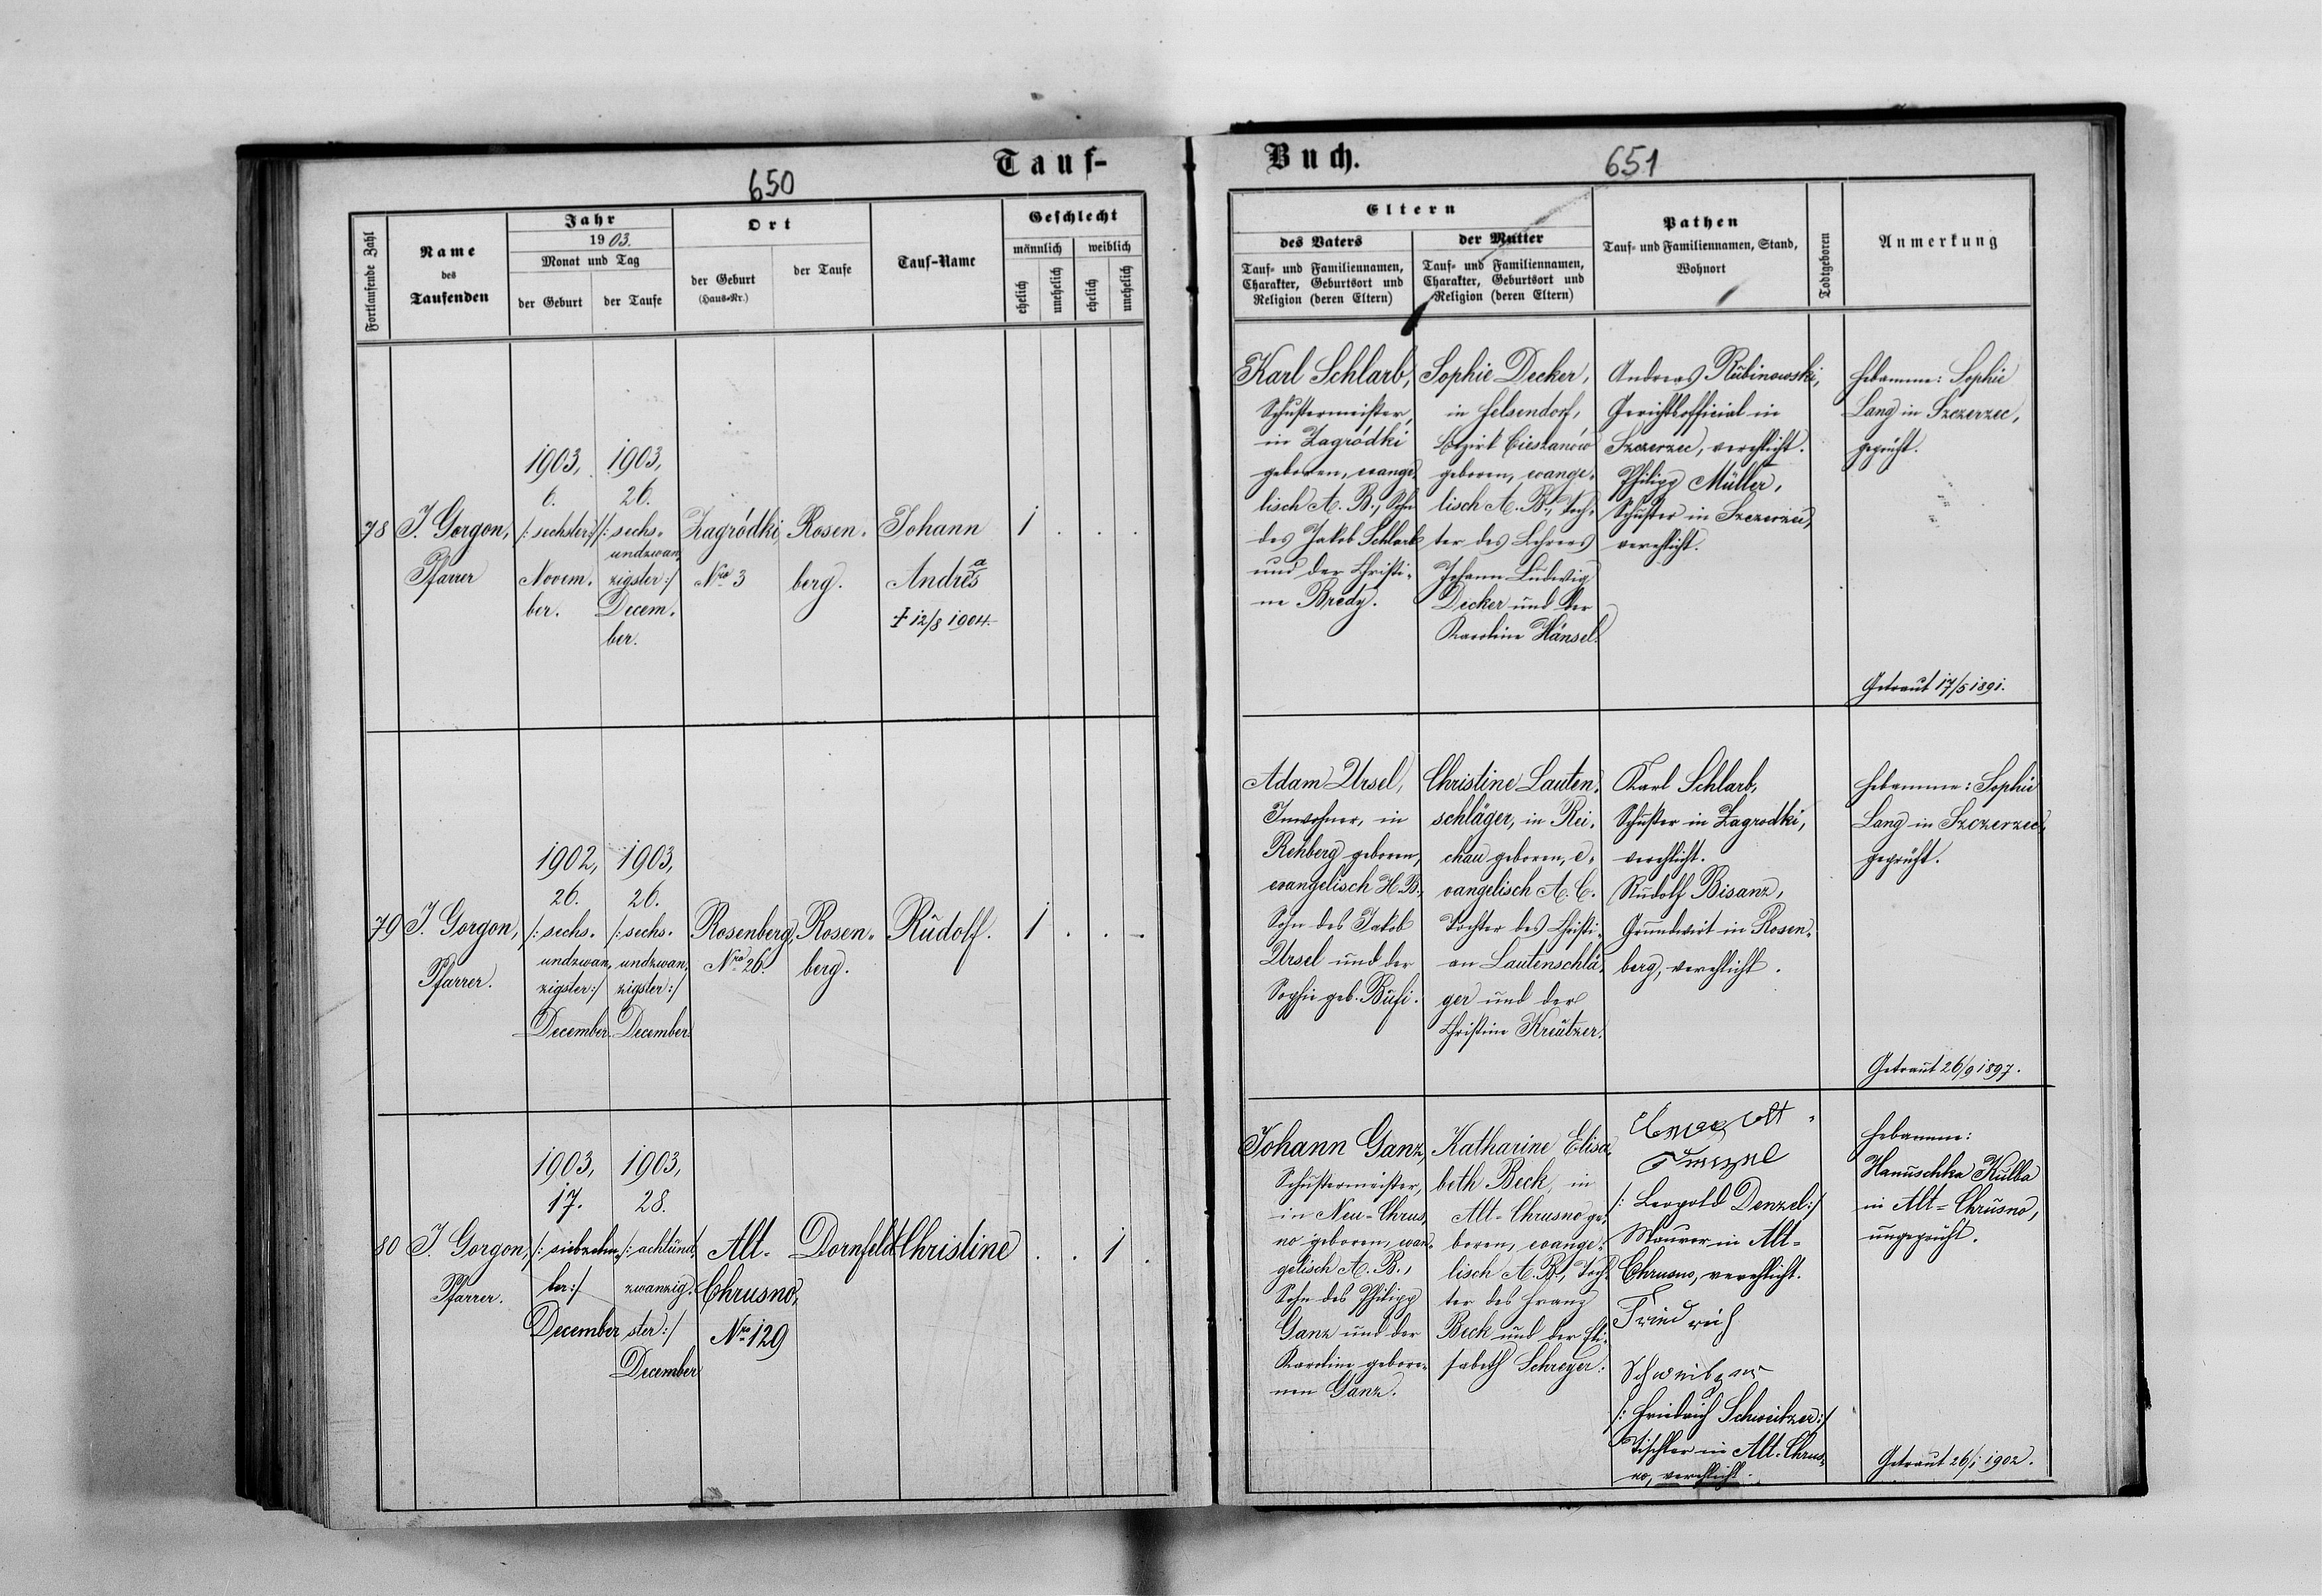 650
Tauf-
Fortlaufende Zahl
Name
des
Taufenden
Jahr
1903.
Monat und Tag
der Geburt
der Taufe
Ort
der Geburt
(Haus-Nr.)
der Taufe
Tauf-Name
Geschlecht
männlich
weiblich
ehelich
unehelich
ehelich
unehelich
78
J. Gorgon,
Pfarrer
1903,
6.
/: sechster :/
Novem-
ber.
1903,
26.
/: sechs-
undzwan-
zigster :/
Decem-
ber.
Zagródki
Nro 3
Rosen-
berg.
Johann
Andreas
† 12/8 1904.
1 . . .
79
J. Gorgon,
Pfarrer.
1902,
26.
/: sechs-
undzwan-
zigster :/
December
1903,
26.
/: sechs-
undzwan-
zigster :/
December
Rosenberg,
Nro 26.
Rosen-
berg.
Rudolf.
1 . . .
80
J. Gorgon,
Pfarrer.
1903,
17.
/: siebzehn-
ter :/
December
1903,
28.
/: achtund-
zwanzig-
ster :/
December
Alt-
Chrusno,
Nro 129
Dornfeld
Christine
. . 1 .
Buch.
651
Eltern
des Vaters
Tauf- und Familiennamen,
Charakter, Geburtsort und
Religion (deren Eltern)
der Mutter
Tauf- und Familiennamen,
Charakter, Geburtsort und
Religion (deren Eltern)
Pathen
Tauf- und Familiennamen, Stand,
Wohnort
Todtgeboren
Anmerkung
Karl Schlarb,
Schustermeister,
in Zagródki
geboren, evange-
lisch A. B., Sohn
des Jakob Schlarb
und der Christi-
ne Bredy.
Sophie Decker,
in Felsendorf,
Bezirk Cieszanów
geboren, evange-
lisch A. B., Toch-
ter des Lehrers
Johann Ludwig
Decker und der
Karoline Hänsel.
Andreas Rubinowski,
Gerichtsofficial in
Szczerzec, verehlicht.
Philipp Müller,
Schuster in Szczerzec,
verehlicht.
Hebamme: Sophie
Lang in Szczerzec,
geprüft.
Getraut 17/5 1891.
Adam Ursel,
Inwohner, in
Rehberg geboren,
evangelisch H. B.,
Sohn des Jakob
Ursel und der
Sophie geb. Bufi.
Christine Lauten-
schläger, in Rei-
chau geboren, e-
vangelisch A. C.
Tochter des Christi-
an Lautenschlä-
ger und der
Christine Kreutzer.
Karl Schlarb,
Schuster in Zagrodki,
verehlicht.
Rudolf Bisanz,
Grundwirt in Rosen-
berg, verehlicht.
Hebamme: Sophie
Lang in Szczerzec,
geprüft.
Getraut 26/9 1897.
Johann Ganz,
Schustermeister,
in Neu-Chrus-
no geboren, evan-
gelisch A. B.,
Sohn des Philipp
Ganz und der
Karoline gebore-
nen Ganz.
Katharine Elisa-
beth Beck, in
Alt-Chrusno ge-
boren, evange-
lisch A. B., Toch-
ter des Franz
Beck und der Eli-
sabeth Schreyer.
/: Leopold Denzel :/
Maurer in Alt-
Chrusno, verehlicht.
Friedreich
/: Friedrich Schweitzer :/
Tischler in Alt-Chrus-
no, verehlicht.
Hebamme:
Hanuschka Kulba
in Alt-Chrusno,
ungeprüft.
Getraut 26/1 1902.